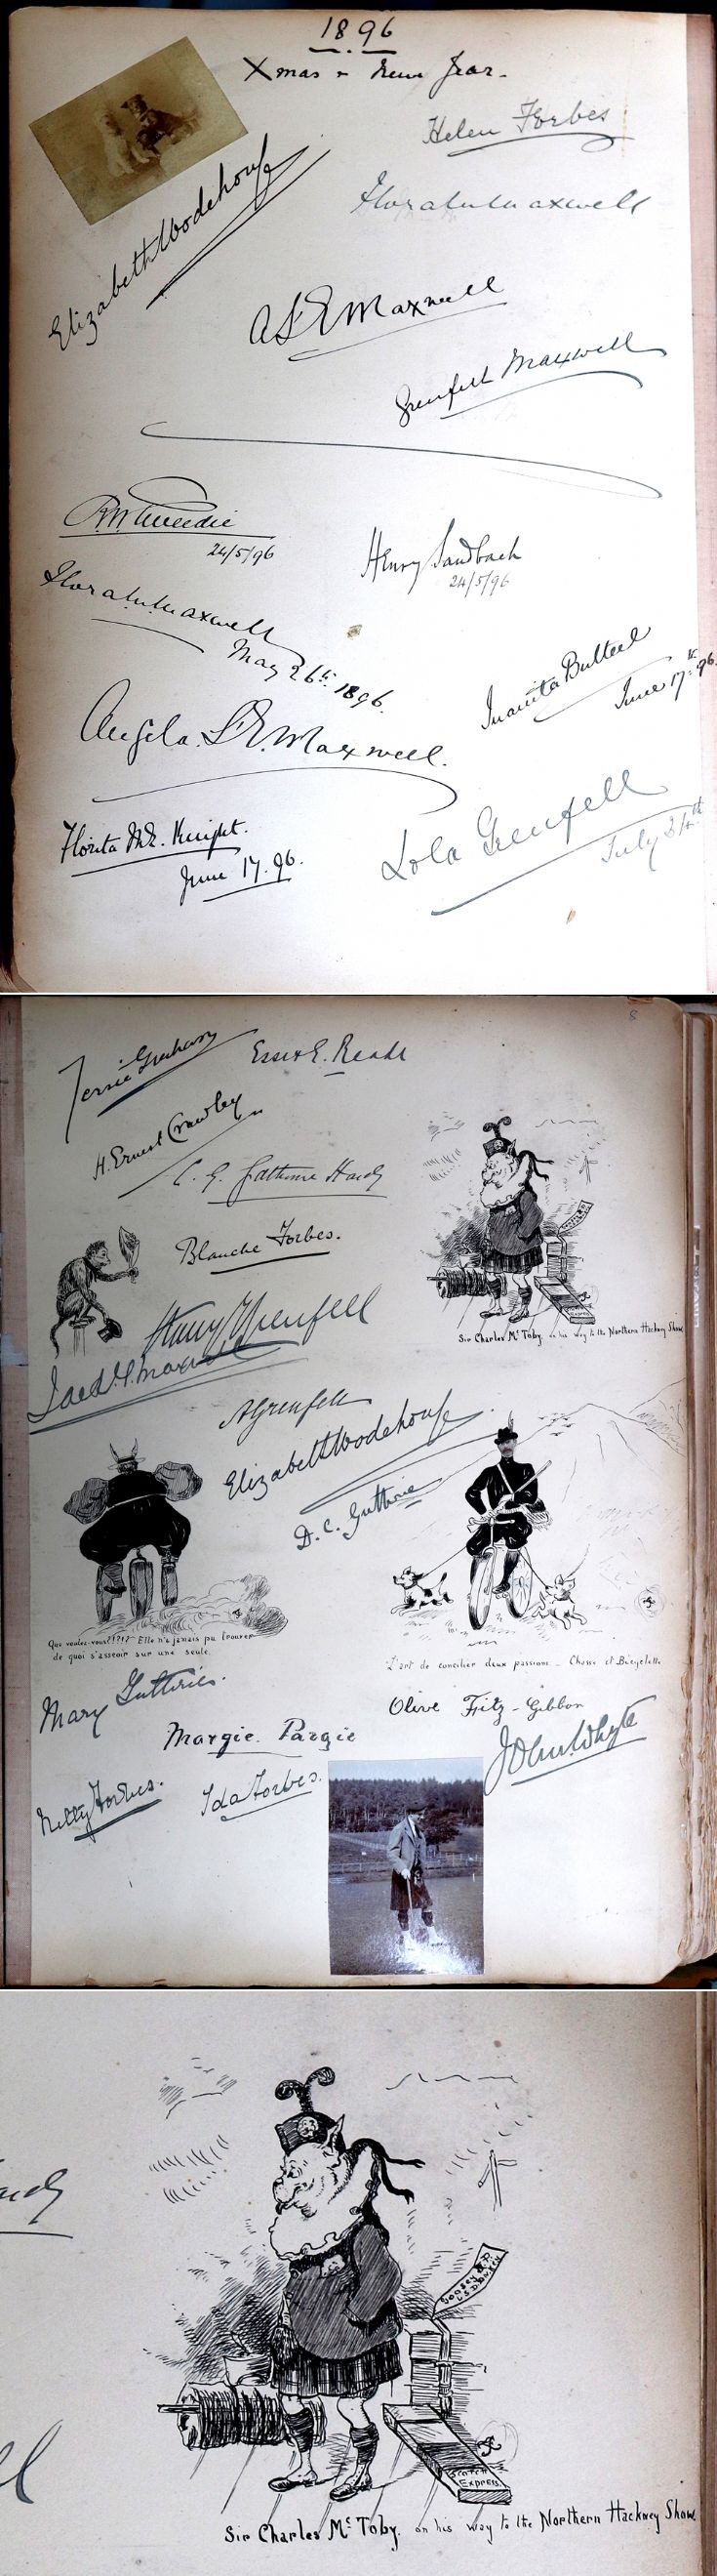 1896
Xmas & New Year.
Helen Forbes
Elizabeth Wodehouse
Maxwell
A L E Maxwell
Grenfell Maxwell
24/5/96
Henry Sandbach
24/5/96
Maxwell
May 26th 1896.
Juanita Bulteel
June 17th 96.
Angela L. E. Maxwell.
Florita McK. Knight.
June 17. 96.
Lola Grenfell
July 24th
8
Jessie Graham
Essex E. Reade
H. Ernest Crawley
C. G. Gathorne Hardy
Blanche Forbes.
Harry Grenfell
Maxwell
Sir Charles Mc Toby. on his way to the Northern Hackney Show
A Grenfell
Elizabeth Wodehouse
D. C. Guthrie
Que voulez-vous!?!? Elle n'a jamais pu trouver
de quoi s'asseoir sur une seule.
L'art de concilier deux passions. Chasse et Bicyclette
Mary Guthrie.
Olive Fitz-Gibbon
Margie Pargie
John Whyte
Nelly Forbes.
Ida Forbes.
Scotch
Express
Sir Charles Mc Toby. on his way to the Northern Hackney Show